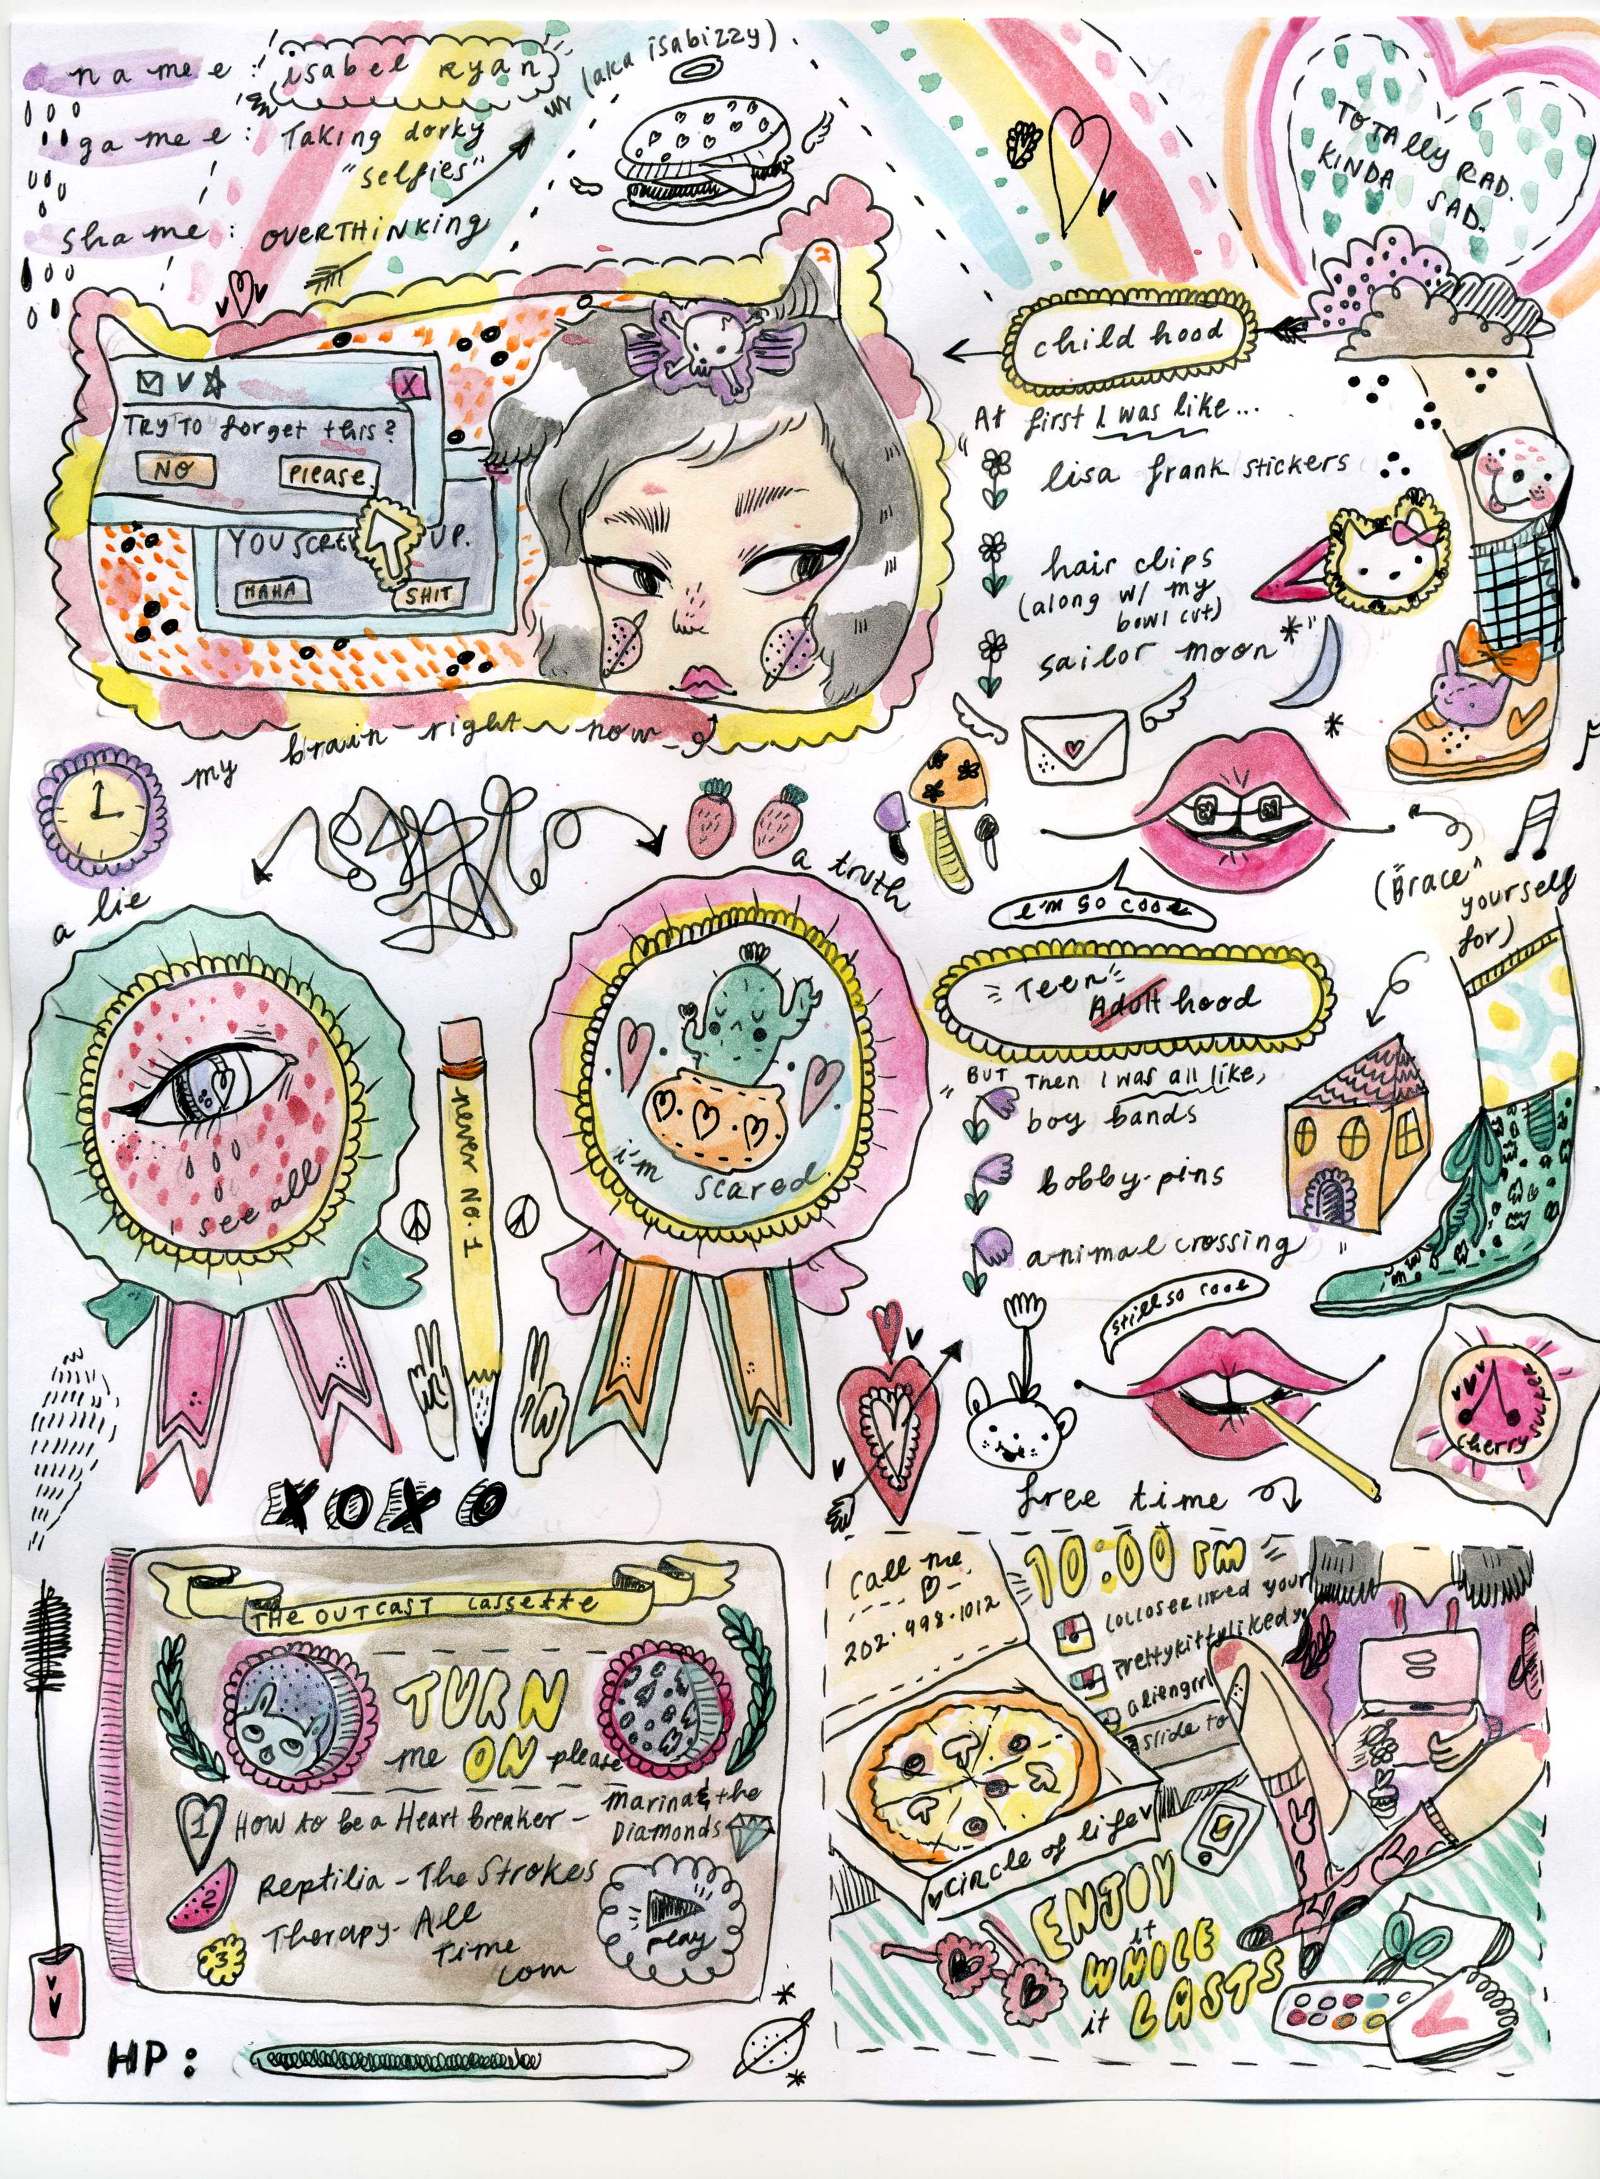 namee: isabel Ryan
(aka isabizzy)
gamee: Taking dorky
"selfies"
shame: OVERTHINKING
TOTAlly RAD.
KINDA SAD.
TRY TO forget this?
NO
Please
YOU UP.
HAHA
SHIT
my brain right now
child hood
At first I was like...
"lisa frank stickers
hair clips
(along w/ my
bowl cut)
sailor moon"
I'm so cool
("Brace"
yourself
for)
a lie
a truth
I see all
never No. 1
i'm scared
Teen
Adult hood
BUT Then I was all like,
"boy bands
bobby-pins
animal crossing"
still so cool
cherry sucker
XOXO
free time
THE OUTCAST cassette
TURN
me ON please
1 How to be a Heart breaker - Marina & the
Diamonds
2 Reptilia - The Strokes
3 Therapy - All
Time
Low
play
HP:
call me
202.998.1012
10:00 PM
liked your
prettykitty liked y
aliengrrl
slide to
circle of life
ENJOY
it
WHILE
it LASTS